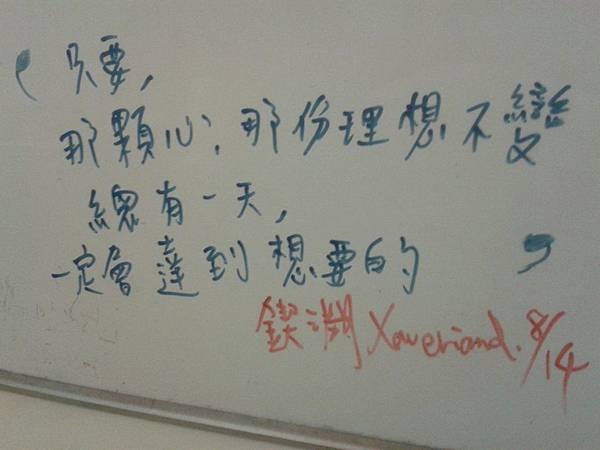 ‘ 只要,
那顆心, 那份理想不變
總有一天,
一定會達到想要的 ’
8/14